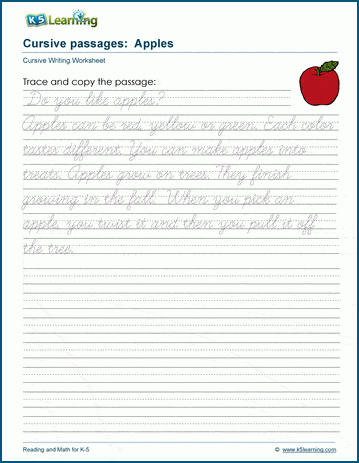 K5 Learning
Cursive passages: Apples
Cursive Writing Worksheet
Trace and copy the passage:
Do you like apples?
Apples can be red, yellow or green. Each color
tastes different. You can make apples into
treats. Apples grow on trees. They finish
growing in the fall. When you pick an
apple, you twist it and then you pull it off
the tree.
Reading and Math for K-5
© www.k5learning.com